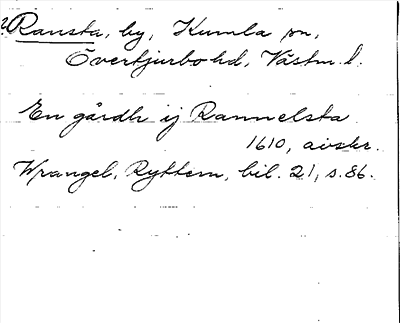 ?Ransta, by, Kumla sn,
Övertjurbo hd, Västm. l.
En gårdh ij Rannelsta
1610, avskr.
Wrangel, Ryttern, bil. 21, s. 86.